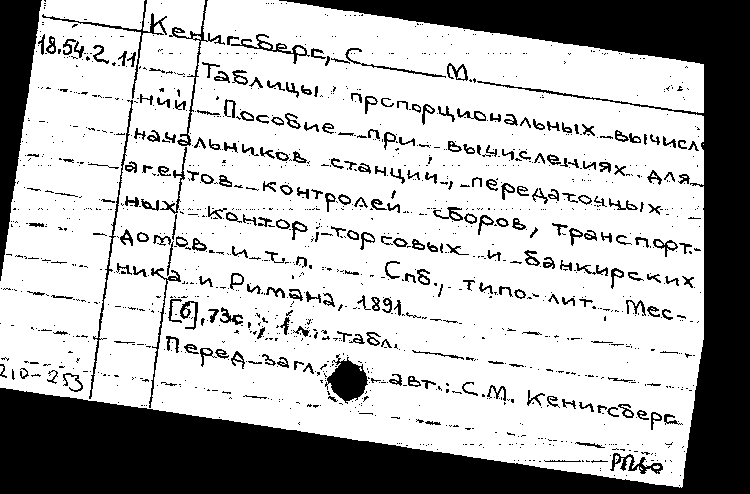 Кенигсберг, С. М.
18.54.2.11
Таблицы пропорциональных вычисле
ний Пособие при вычислениях для
начальников станций, передаточных
агентов контролей сборов, транспорт-
ных контор, торговых и банкирских
домов и т.п. Спб., типо-лит. Мес-
ника и Римана, 1891.
[6], 73с., 1 табл.
Перед загл. авт.: С.М. Кенигсберг
210-253